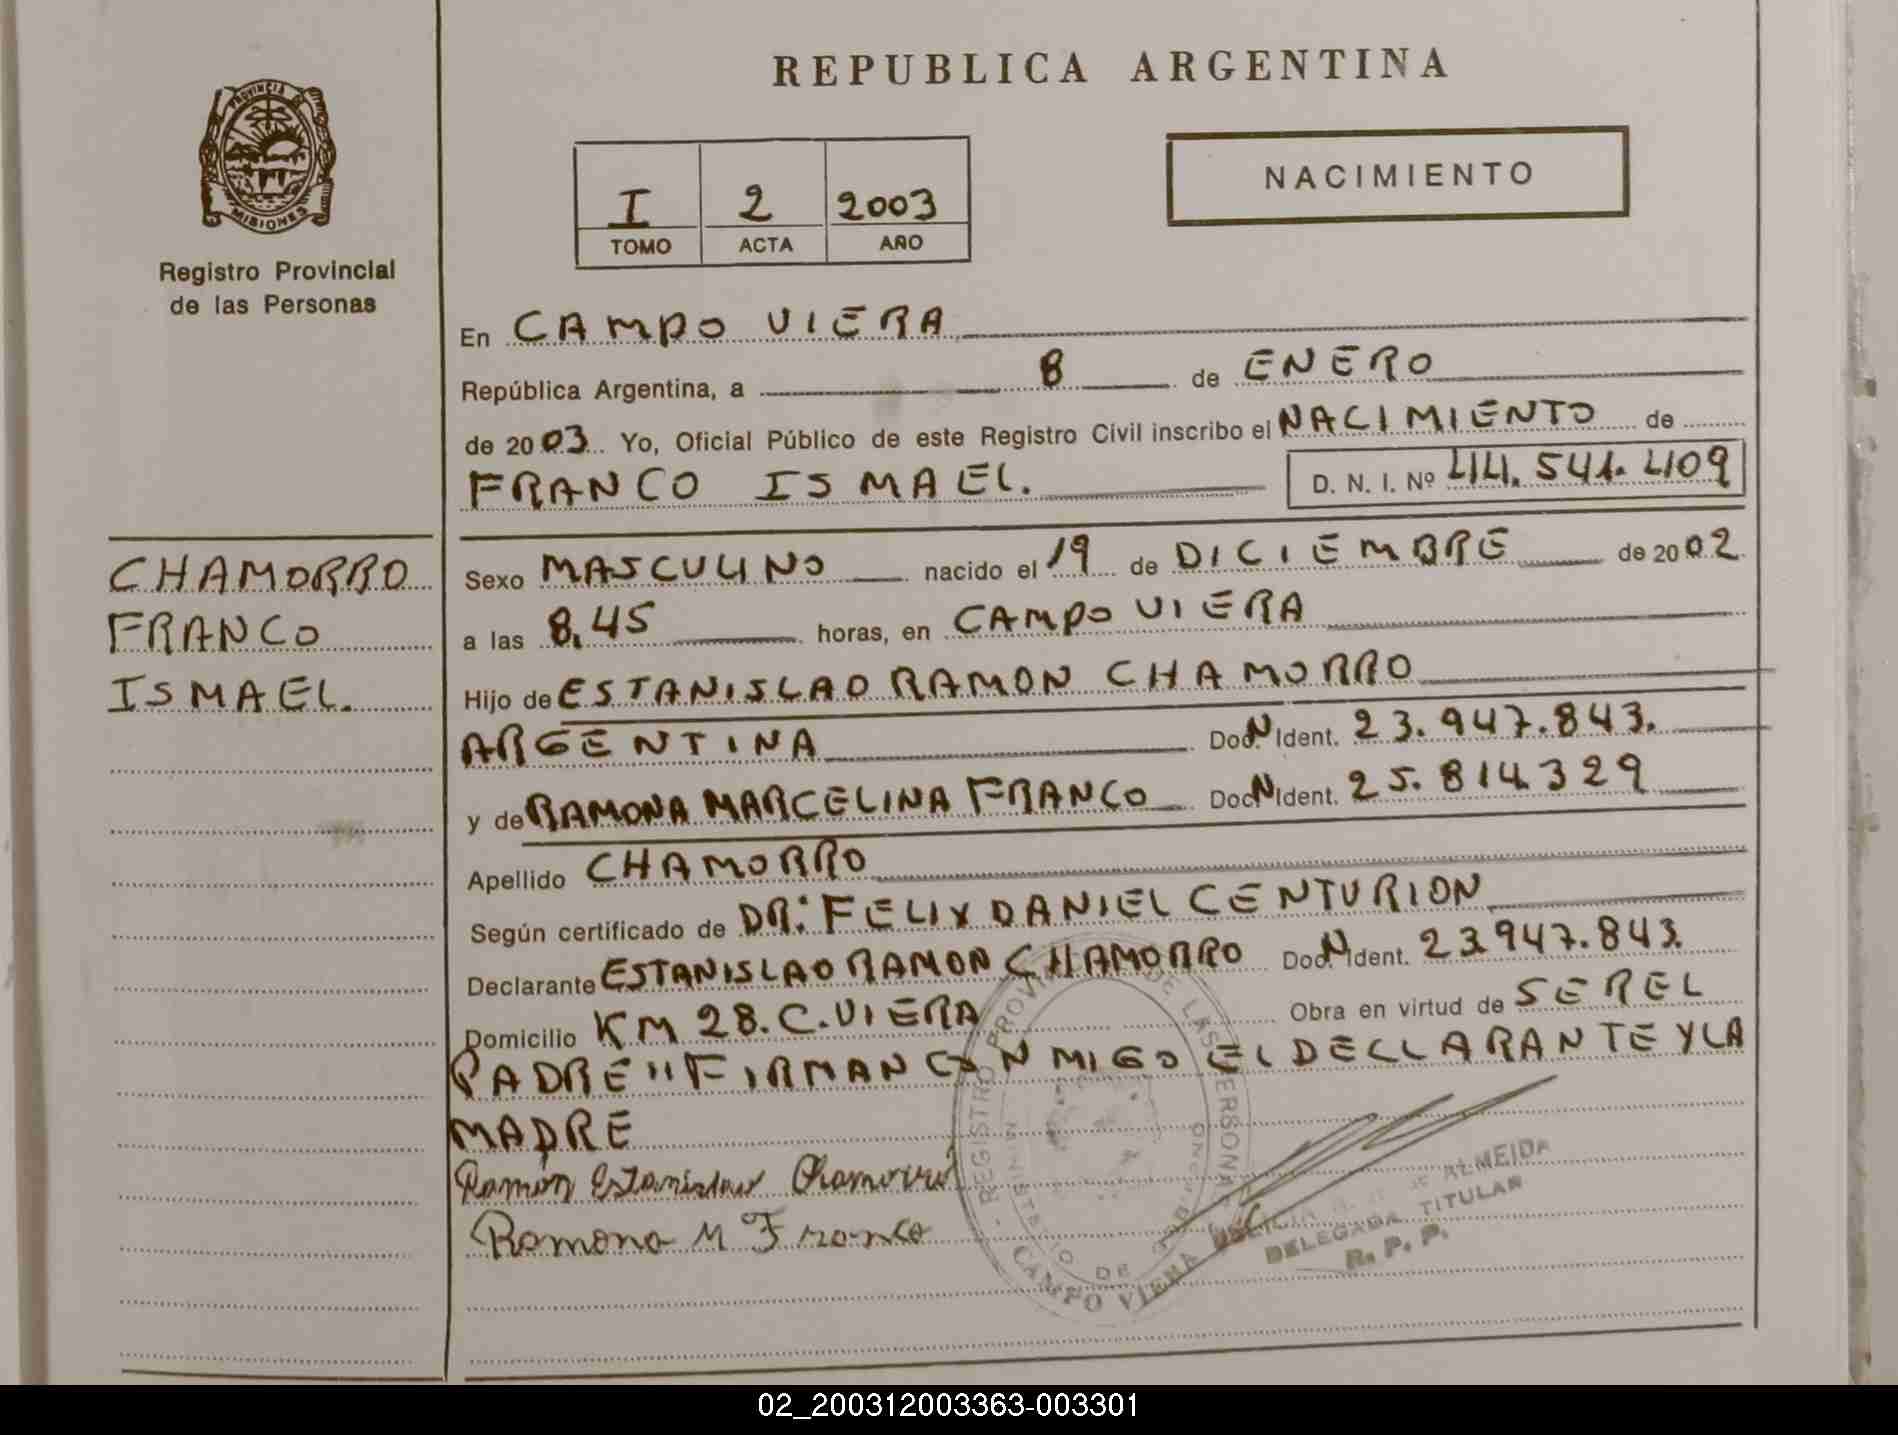 REPUBLICA ARGENTINA
PROVINCIA DE
MISIONES
Registro Provincial
de las Personas
I 2 2003
TOMO ACTA AÑO
NACIMIENTO
En CAMPO VIERA
República Argentina, a 8 de ENERO
de 2003 Yo, Oficial Público de este Registro Civil inscribo el NACIMIENTO de
FRANCO ISMAEL. D. N. I. Nº 44.541.409
CHAMORRO
FRANCO
ISMAEL.
Sexo MASCULINO nacido el 19 de DICIEMBRE de 2002
a las 8,45 horas, en CAMPO VIERA
Hijo de ESTANISLAO RAMON CHAMORRO
ARGENTINA Doc. N Ident. 23.947.843.
y de RAMONA MARCELINA FRANCO Doc. N Ident. 25.814.329
Apellido CHAMORRO
Según certificado de DR: FELIX DANIEL CENTURION
Declarante ESTANISLAO RAMON CHAMORRO Doc. N Ident. 23.947.843.
Domicilio KM 28. C. VIERA Obra en virtud de SER EL
PADRE" FIRMAN CONMIGO EL DECLARANTE Y LA
MADRE
Ramón Estanislao Chamorro
Ramona M Franco
REGISTRO PROVINCIAL DE LAS PERSONAS
MINISTERIO DE GOBIERNO
CAMPO VIERA
DE ALMEIDA
DELEGADA TITULAR
R. P. P.
02_200312003363-003301